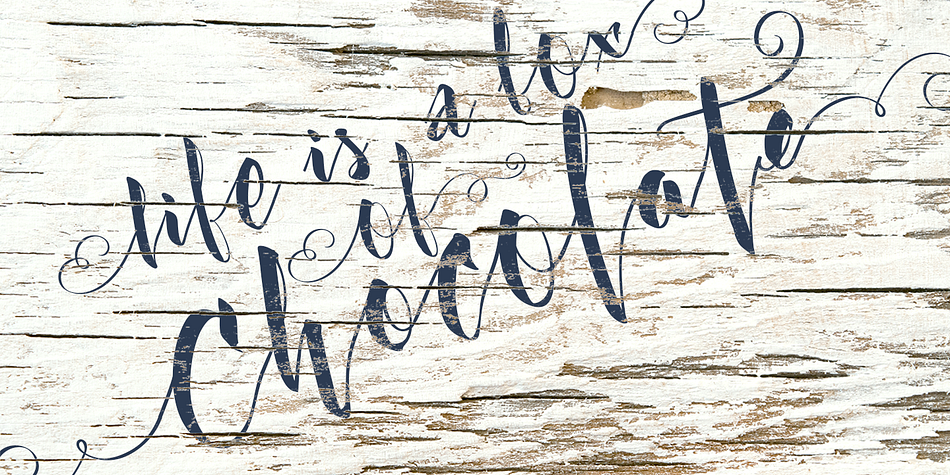 life is a box
of
Chocolate